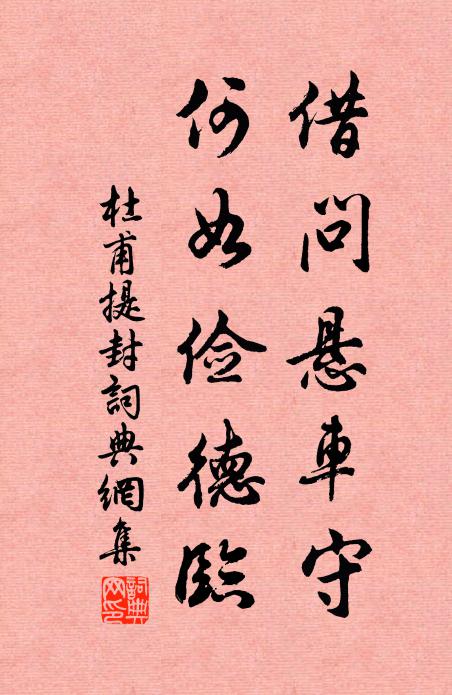 借问悬車守
何如俭德臨
杜甫提封詞典網集
詞典
网印